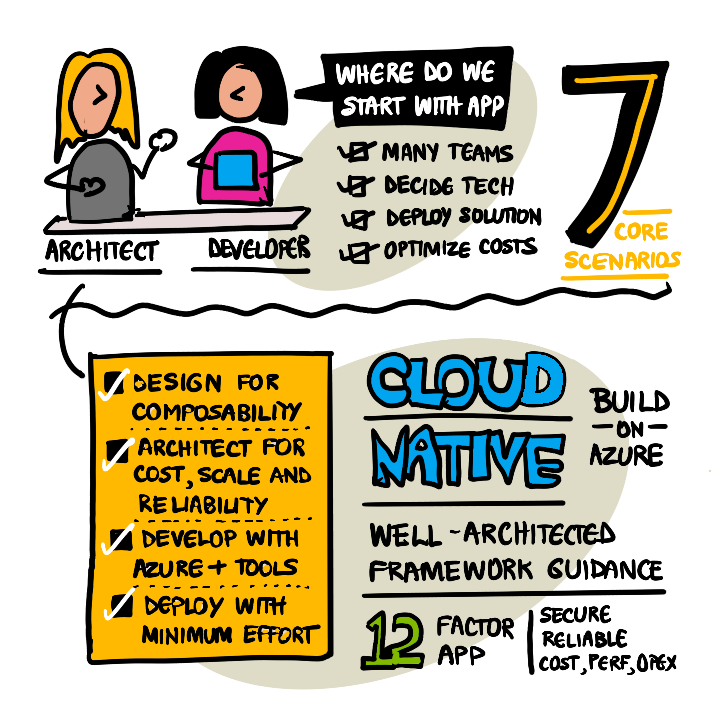 WHERE DO WE
START WITH APP
MANY TEAMS
DECIDE TECH
DEPLOY SOLUTION
OPTIMIZE COSTS
ARCHITECT
DEVELOPER
7
CORE
SCENARIOS
DESIGN FOR
COMPOSABILITY
ARCHITECT FOR
COST, SCALE AND
RELIABILITY
DEVELOP WITH
AZURE + TOOLS
DEPLOY WITH
MINIMUM EFFORT
CLOUD
NATIVE
BUILD
- ON -
AZURE
WELL-ARCHITECTED
FRAMEWORK GUIDANCE
12
FACTOR
APP
SECURE
RELIABLE
COST, PERF, OPEX